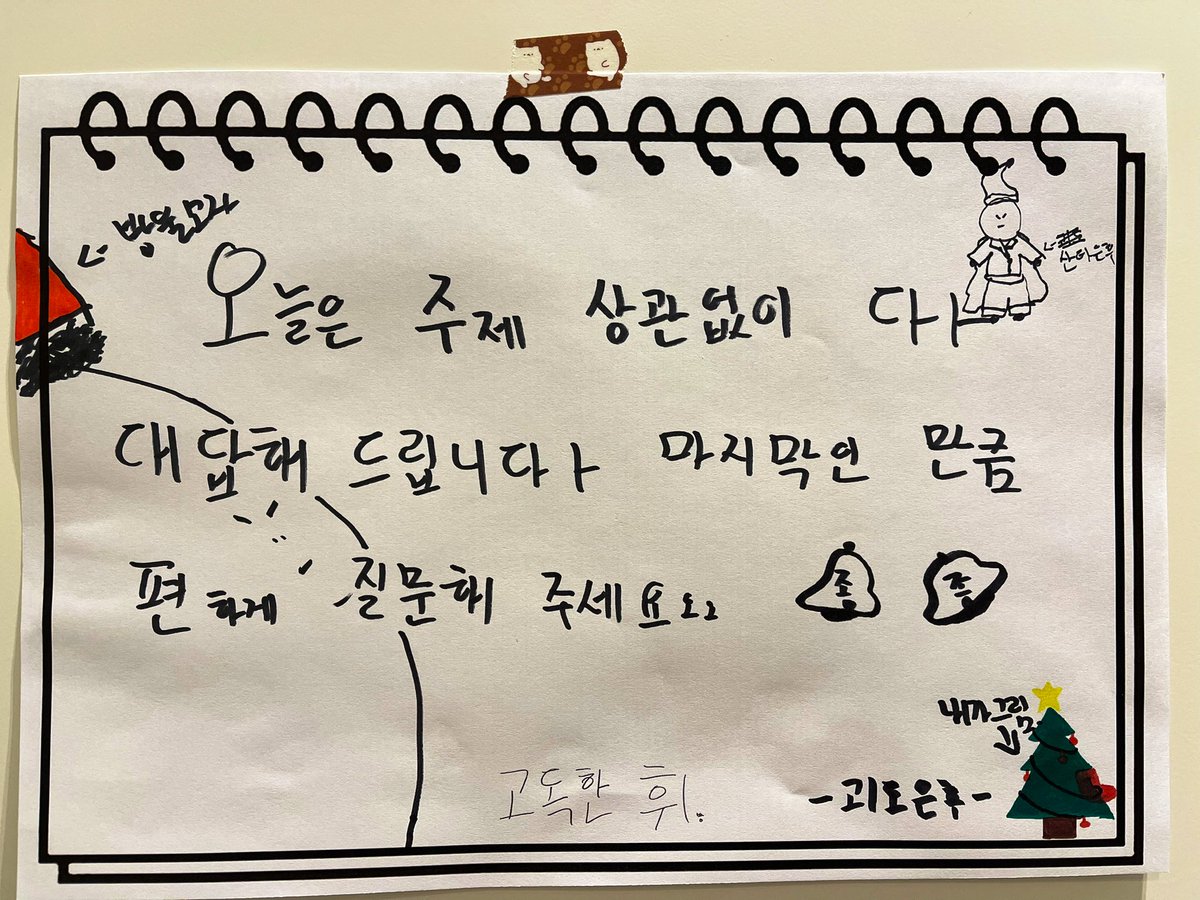 방울모자
산타은후
오늘은 주제 상관없이 다
대답해 드립니다 마지막인 만큼
편하게 질문해 주세요오 종 종
내가그림
고독한 휘.
-괴도은후-